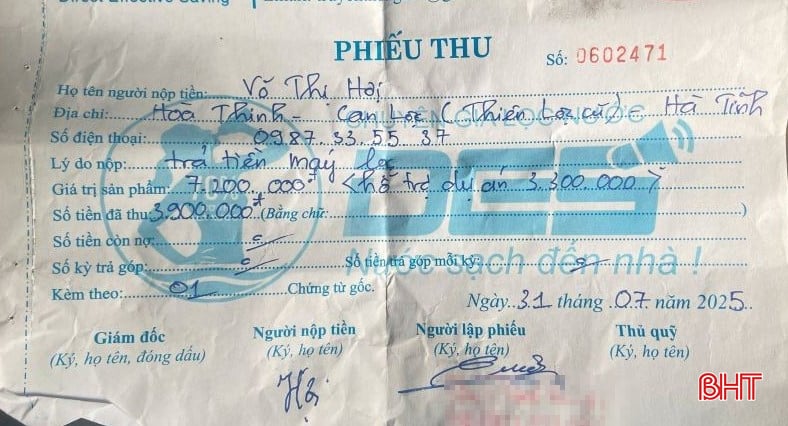 Direct Effective Saving
PHIẾU THU
Số: 0602471
Họ tên người nộp tiền: Võ Thị Hợi
Địa chỉ: Hoà Thịnh - Can Lộc (Thiên Lộc cũ) Hà Tĩnh
CHUYÊN GIA LỌC NƯỚC
Số điện thoại: 0987.33.55.37
Lý do nộp: trả tiền máy lọc
Giá trị sản phẩm: 7.200.000đ <hỗ trợ dự án 3.300.000>
DES
Số tiền đã thu: 3.900.000đ (Bằng chữ: )
Số tiền còn nợ:
Số kỳ trả góp: Số tiền trả góp mỗi kỳ:
Nước sạch đến nhà !
Kèm theo: 01 Chứng từ gốc.
Ngày 31 tháng 07 năm 2025
Giám đốc Người nộp tiền Người lập phiếu Thủ quỹ
(Ký, họ tên, đóng dấu) (Ký, họ tên) (Ký, họ tên) (Ký, họ tên)
BHT